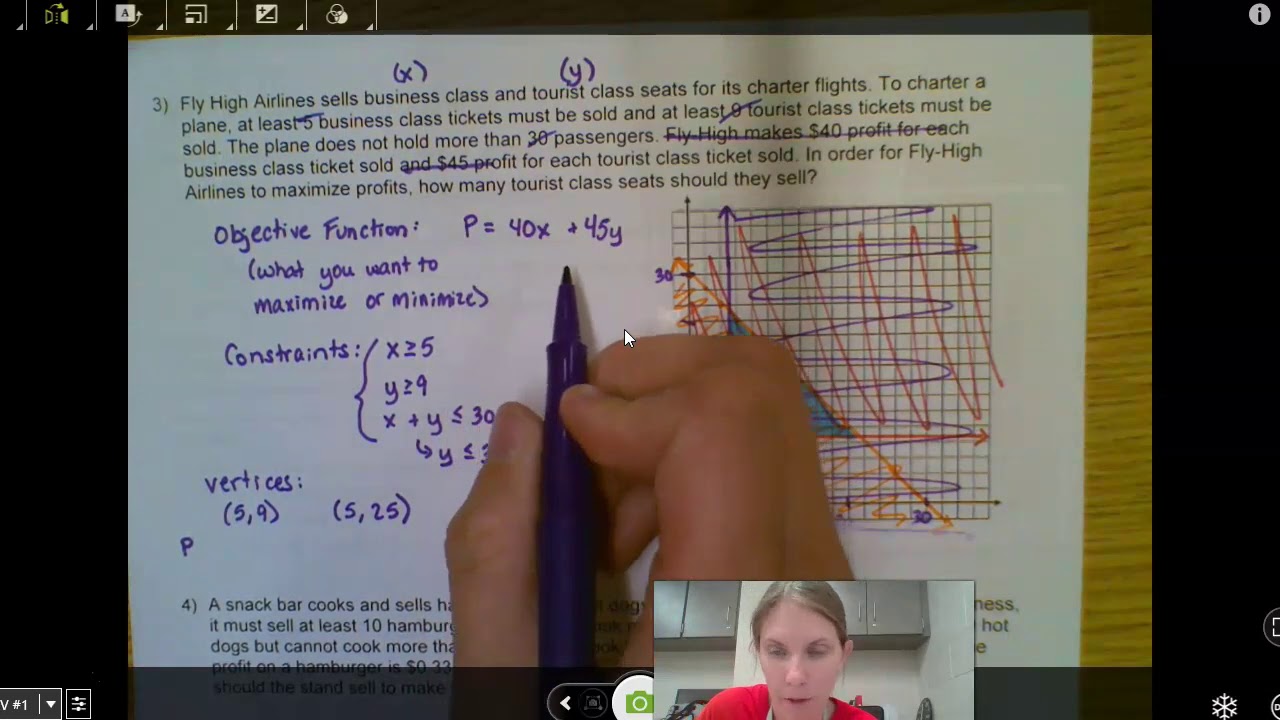 (x) (y)
3) Fly High Airlines sells business class and tourist class seats for its charter flights. To charter a
plane, at least 5 business class tickets must be sold and at least 9 tourist class tickets must be
sold. The plane does not hold more than 30 passengers. Fly-High makes $40 profit for each
business class ticket sold and $45 profit for each tourist class ticket sold. In order for Fly-High
Airlines to maximize profits, how many tourist class seats should they sell?
Objective Function: P = 40x + 45y
(what you want to
maximize or minimize)
30
Constraints: x ≥ 5
y ≥ 9
x + y ≤ 30
↳ y ≤
vertices:
(5,9) (5,25)
30
P
4) A snack bar cooks and sells
it must sell at least 10 hot
dogs but cannot cook more
profit on a hamburger is $0.33
should the stand sell to make
V #1